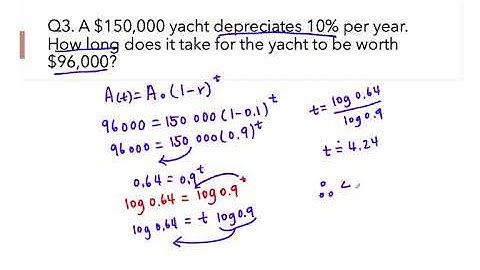 Q3. A $150,000 yacht depreciates 10% per year.
How long does it take for the yacht to be worth
$96,000?
A(t) = A₀ (1-r)^t
96 000 = 150 000 (1-0.1)^t
96 000 = 150 000 (0.9)^t
0.64 = 0.9^t
log 0.64 = log 0.9^t
log 0.64 = t log 0.9
t = log 0.64 / log 0.9
t ≐ 4.24
∴